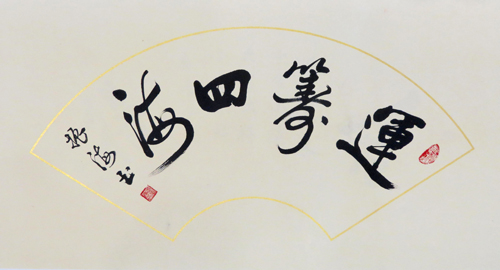 運籌四海